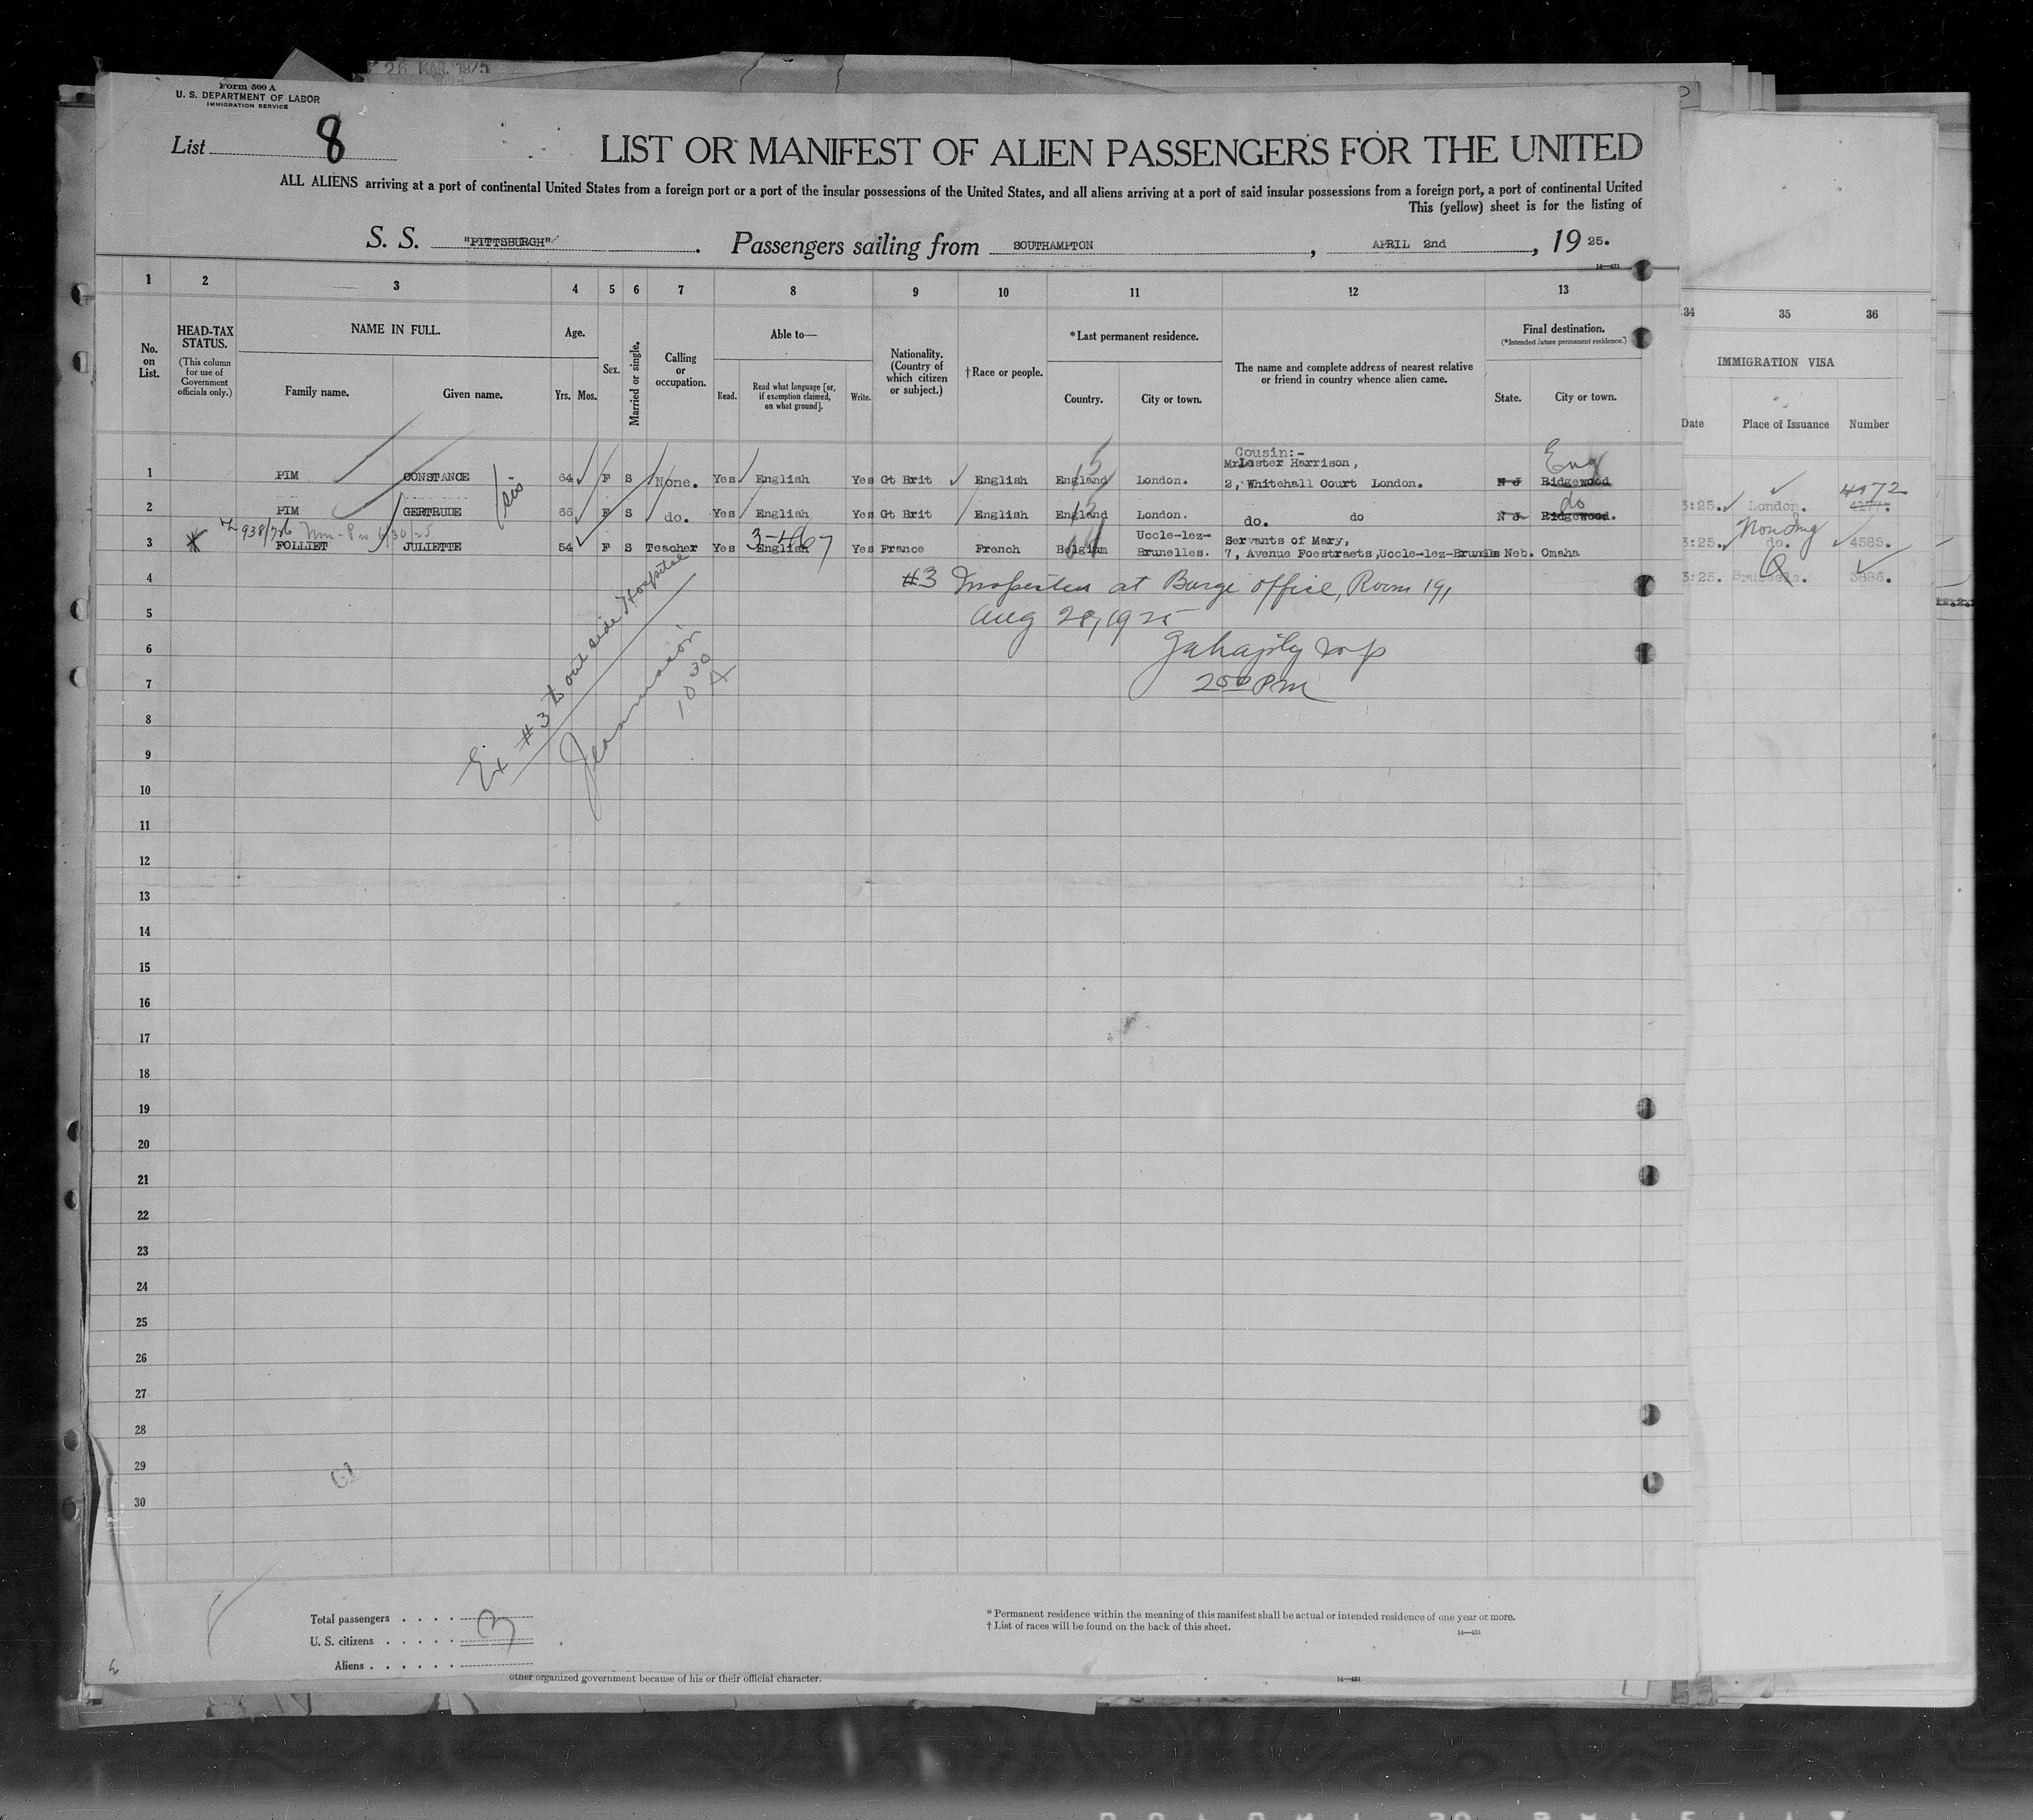 26 MAR. 1925
Form 500 A
U. S. DEPARTMENT OF LABOR
IMMIGRATION SERVICE
List 8
LIST OR MANIFEST OF ALIEN PASSENGERS FOR THE UNITED
ALL ALIENS arriving at a port of continental United States from a foreign port or a port of the insular possessions of the United States, and all aliens arriving at a port of said insular possessions from a foreign port, a port of continental United
This (yellow) sheet is for the listing of
S. S. "PITTSBURGH" . Passengers sailing from SOUTHAMPTON , APRIL 2nd , 19 25.
14—431
1 2 3 4 5 6 7 8 9 10 11 12 13
34 35 36
No. on List.
HEAD-TAX STATUS.
(This column for use of Government officials only.)
NAME IN FULL.
Family name. Given name.
Age.
Yrs. Mos.
Sex.
Married or single.
Calling or occupation.
Able to—
Read. Read what language [or, if exemption claimed, on what ground]. Write.
Nationality. (Country of which citizen or subject.)
†Race or people.
*Last permanent residence.
Country. City or town.
The name and complete address of nearest relative or friend in country whence alien came.
Final destination.
(*Intended future permanent residence.)
State. City or town.
IMMIGRATION VISA
Date Place of Issuance Number
Cousin:- Eng
Mr Lester Harrison,
1 PIM CONSTANCE sis 64 F S None. Yes English Yes Gt Brit English England London. 2, Whitehall Court London. N J Ridgewood
4072
2 PIM GERTRUDE 66 F S do. Yes English Yes Gt Brit English England London. do. do N J Ridgewood. do
3:25. London.
938/726 6/30/25
3-467
Uccle-lez- Servants of Mary,
3 FOLLIET JULIETTE 54 F S Teacher Yes English Yes France French Belgium Brunelles. 7, Avenue Foestraets, Uccle-lez-Brunells Neb. Omaha
Non Imq
3:25. do. 4585.
3:25. Brussels. 3886.
4
#3 Inspected at Barge Office, Room 191
5
Aug 28, 1925
6
7
2 00 PM
Ex #3 to out side Hospital
10 30
8
9
10
11
12
13
14
15
16
17
18
19
20
21
22
23
24
25
26
27
28
29
30
Total passengers . . . . 3
U. S. citizens . . . . .
Aliens . . . . . .
* Permanent residence within the meaning of this manifest shall be actual or intended residence of one year or more.
† List of races will be found on the back of this sheet.
14—431
other organized government because of his or their official character.
14—431